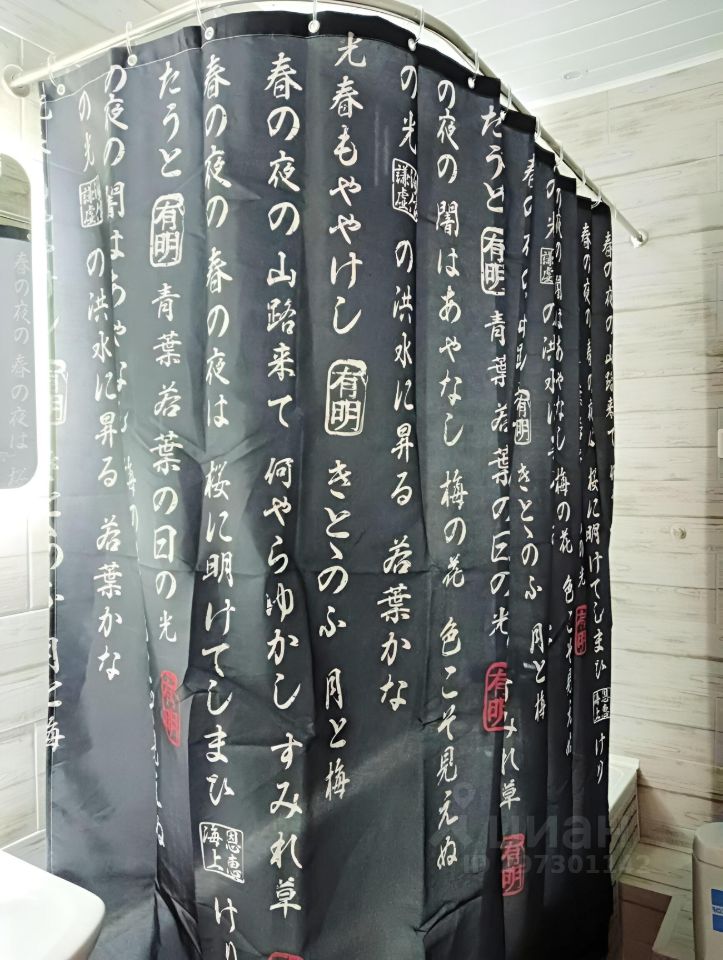 光
春もややけし
有明
きとゝのふ
月と梅
春の夜の山路来て
何やらゆかし
すみれ草
春の夜の春の夜は
桜に明けてしまひ
海上
恩恵
けり
たうと
有明
青葉若葉の日の光
有明
の夜の
闇はあやなし
梅の花
色こそ見えぬ
の光
謙虚
の洪水に昇る
若葉かな
たうと
有明
青葉若葉の日の光
有明
の光
謙虚
の洪水に昇る
若葉かな
の夜の
闇はあやな
有明
きとゝのふ
月と梅
れ草
有明
の夜の
闇はあやなし
梅の花
色こそ見えぬ
春の夜の
桜に明けてしまひ
海上
恩恵
けり
春の夜の山路来て
の光
有明
春の夜の春の夜は
циан
ID 197301142